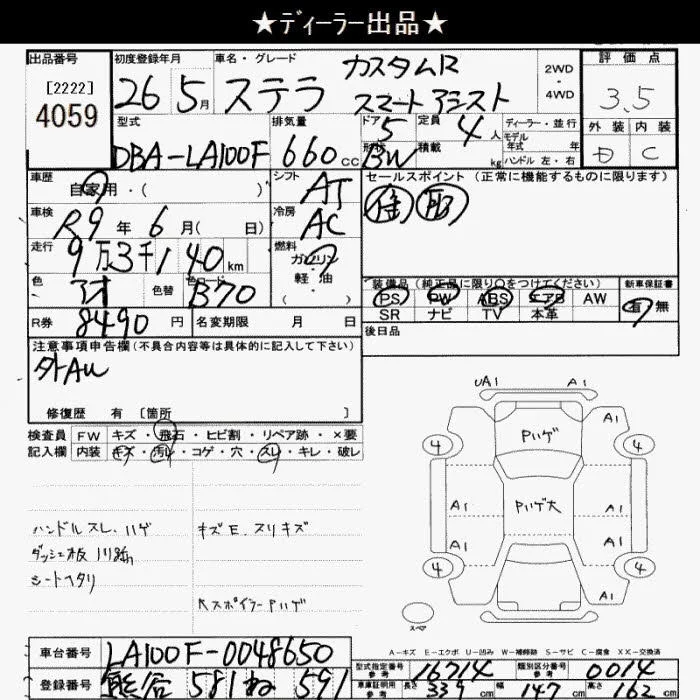 ★ディーラー出品★
出品番号 初度登録年月 車名・グレード 評価点
[2222] 4059
26 5月 ステラ カスタムR スマートアシスト 2WD・4WD 3.5
型式 排気量 ドア 定員 ディーラー・並行 外装 内装
DBA-LA100F 660cc 5 4人 モデル年式 年 D C
形状 BW 積載 kg ハンドル 左・右
車歴 自家用・( ) シフト AT セールスポイント (正常に機能するものに限ります)
車検 R9年6月( 日) 冷房 AC
走行 9万3千140km 燃料 ガソリン・軽油 ( ・ )
色 アオ 色替 色コード B70 装備品 (純正品に限り○をつけてください) 新車保証書
PS PW ABS エアB AW 有・無
SR ナビ TV 本革
R券 8490円 名変期限 月 日 後日品
注意事項申告欄(不具合内容等は具体的に記入して下さい)
外AW
修復歴 有 [箇所 ]
検査員 FW キズ・飛石・ヒビ割・リペア跡・×要
記入欄 内装 キズ・汚レ・コゲ・穴・スレ・キレ・破レ
ハンドルスレ、ハゲ キズE、スリキズ
ダッシュ板
シートヘタリ
スポイラーPハゲ
UA1 A1
Pハゲ A1
4 4
A1 Pハゲ大 A1
A1 A1
4 4
スペア
A-キズ E-エクボ U-凹み W-補修跡 S-サビ C-腐食 XX-交換済
車台番号 LA100F-0048650 型式指定番号 参考 16714 類別区分番号 参考 0014
登録番号 熊谷 581 ね 591 車庫証明用 参考 長さ 339cm 幅 147cm 高さ 162cm